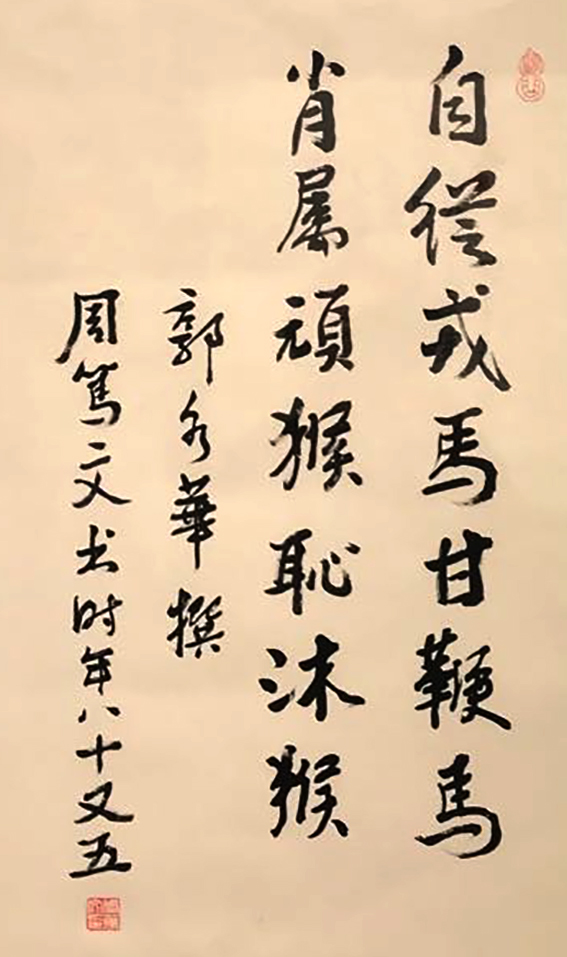 自從戎馬甘鞭馬
肖屬頑猴恥沐猴
郭永華撰
周篤文书时年八十又五